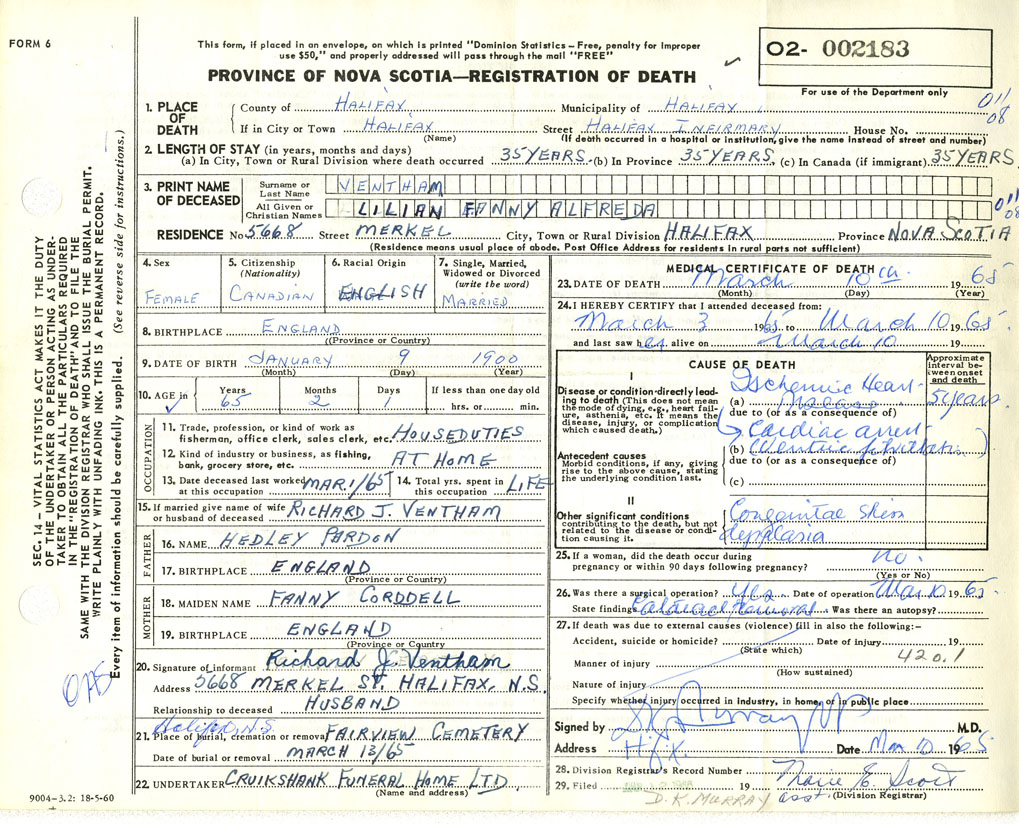 FORM 6
This form, if placed in an envelope, on which is printed "Dominion Statistics – Free, penalty for improper
use $50," and properly addressed will pass through the mail "FREE"
PROVINCE OF NOVA SCOTIA—REGISTRATION OF DEATH
O2- 002183
For use of the Department only
011
08
SEC. 14 – VITAL STATISTICS ACT MAKES IT THE DUTY
OF THE UNDERTAKER OR PERSON ACTING AS UNDER-
TAKER TO OBTAIN ALL THE PARTICULARS REQUIRED
IN THE "REGISTRATION OF DEATH" AND TO FILE THE
SAME WITH THE DIVISION REGISTRAR WHO SHALL ISSUE THE BURIAL PERMIT.
WRITE PLAINLY WITH UNFADING INK. THIS IS A PERMANENT RECORD.
Every item of information should be carefully supplied. (See reverse side for instructions.)
1. PLACE OF DEATH
County of HALIFAX Municipality of HALIFAX
If in City or Town HALIFAX Street HALIFAX INFIRMARY House No.
(Name) (If death occurred in a hospital or institution, give the name instead of street and number)
2. LENGTH OF STAY (in years, months and days)
(a) In City, Town or Rural Division where death occurred 35 YEARS (b) In Province 35 YEARS (c) In Canada (if immigrant) 35 YEARS
3. PRINT NAME OF DECEASED
Surname or Last Name VENTHAM
All Given or Christian Names LILIAN FANNY ALFREDA
011
08
RESIDENCE No. 5668 Street MERKEL City, Town or Rural Division HALIFAX Province NOVA SCOTIA
(Residence means usual place of abode. Post Office Address for residents in rural parts not sufficient)
4. Sex
FEMALE
5. Citizenship (Nationality)
CANADIAN
6. Racial Origin
ENGLISH
7. Single, Married, Widowed or Divorced (write the word)
MARRIED
8. BIRTHPLACE ENGLAND
((Province or Country)
9. DATE OF BIRTH JANUARY 9 1900
(Month) (Day) (Year)
10. AGE in Years 65 Months 2 Days 1 If less than one day old hrs. or min.
OCCUPATION
11. Trade, profession, or kind of work as
fisherman, office clerk, sales clerk, etc. HOUSEDUTIES
12. Kind of industry or business, as fishing,
bank, grocery store, etc. AT HOME
13. Date deceased last worked at this occupation MAR. 1/65 14. Total yrs. spent in this occupation LIFE
15. If married give name of wife or husband of deceased RICHARD J. VENTHAM
FATHER
16. NAME HEDLEY PARDON
17. BIRTHPLACE ENGLAND
(Province or Country)
MOTHER
18. MAIDEN NAME FANNY CORDDELL
19. BIRTHPLACE ENGLAND
(Province or Country
20. Signature of informant Richard J. Ventham
Address 5668 MERKEL ST. HALIFAX, N.S.
Relationship to deceased HUSBAND
Halifax, N.S.
21. Place of burial, cremation or removal FAIRVIEW CEMETERY
Date of burial or removal MARCH 13/65
22. UNDERTAKER CRUIKSHANK FUNERAL HOME LTD.
(Name and address)
9004-3.2: 18-5-60
MEDICAL CERTIFICATE OF DEATH
23. DATE OF DEATH March 10th 1965
(Month) (Day) (Year)
24. I HEREBY CERTIFY that I attended deceased from:
March 3 1965 to March 10 1965
and last saw her alive on March 10 19
CAUSE OF DEATH
Approximate interval between onset and death
I
Disease or condition directly leading to death (This does not mean the mode of dying, e.g., heart failure, asthenia, etc. It means the disease, injury, or complication which caused death.)
(a) Ischemic Heart Disease 5 years
due to (or as a consequence of)
Cardiac arrest
(b)
due to (or as a consequence of)
(c)
Antecedent causes
Morbid conditions, if any, giving rise to the above cause, stating the underlying condition last.
II
Other significant conditions contributing to the death, but not related to the disease or condition causing it.
Congenital Skin
dysplasia
25. If a woman, did the death occur during
pregnancy or within 90 days following pregnancy? no.
(Yes or No)
26. Was there a surgical operation? Yes Date of operation Mar 10 1965
State findings Cataract Removal Was there an autopsy?
27. If death was due to external causes (violence) fill in also the following:–
Accident, suicide or homicide? Date of injury 19
(State which) 420.1
Manner of injury
(How sustained)
Nature of injury
Specify whether injury occurred in industry, in home, or in public place
Signed by D K Murray MD M.D.
Address Hfx Date Mar 10 1965
28. Division Registrar's Record Number Marie E. Scott
29. Filed 19 asst. (Division Registrar)
D.K. MURRAY